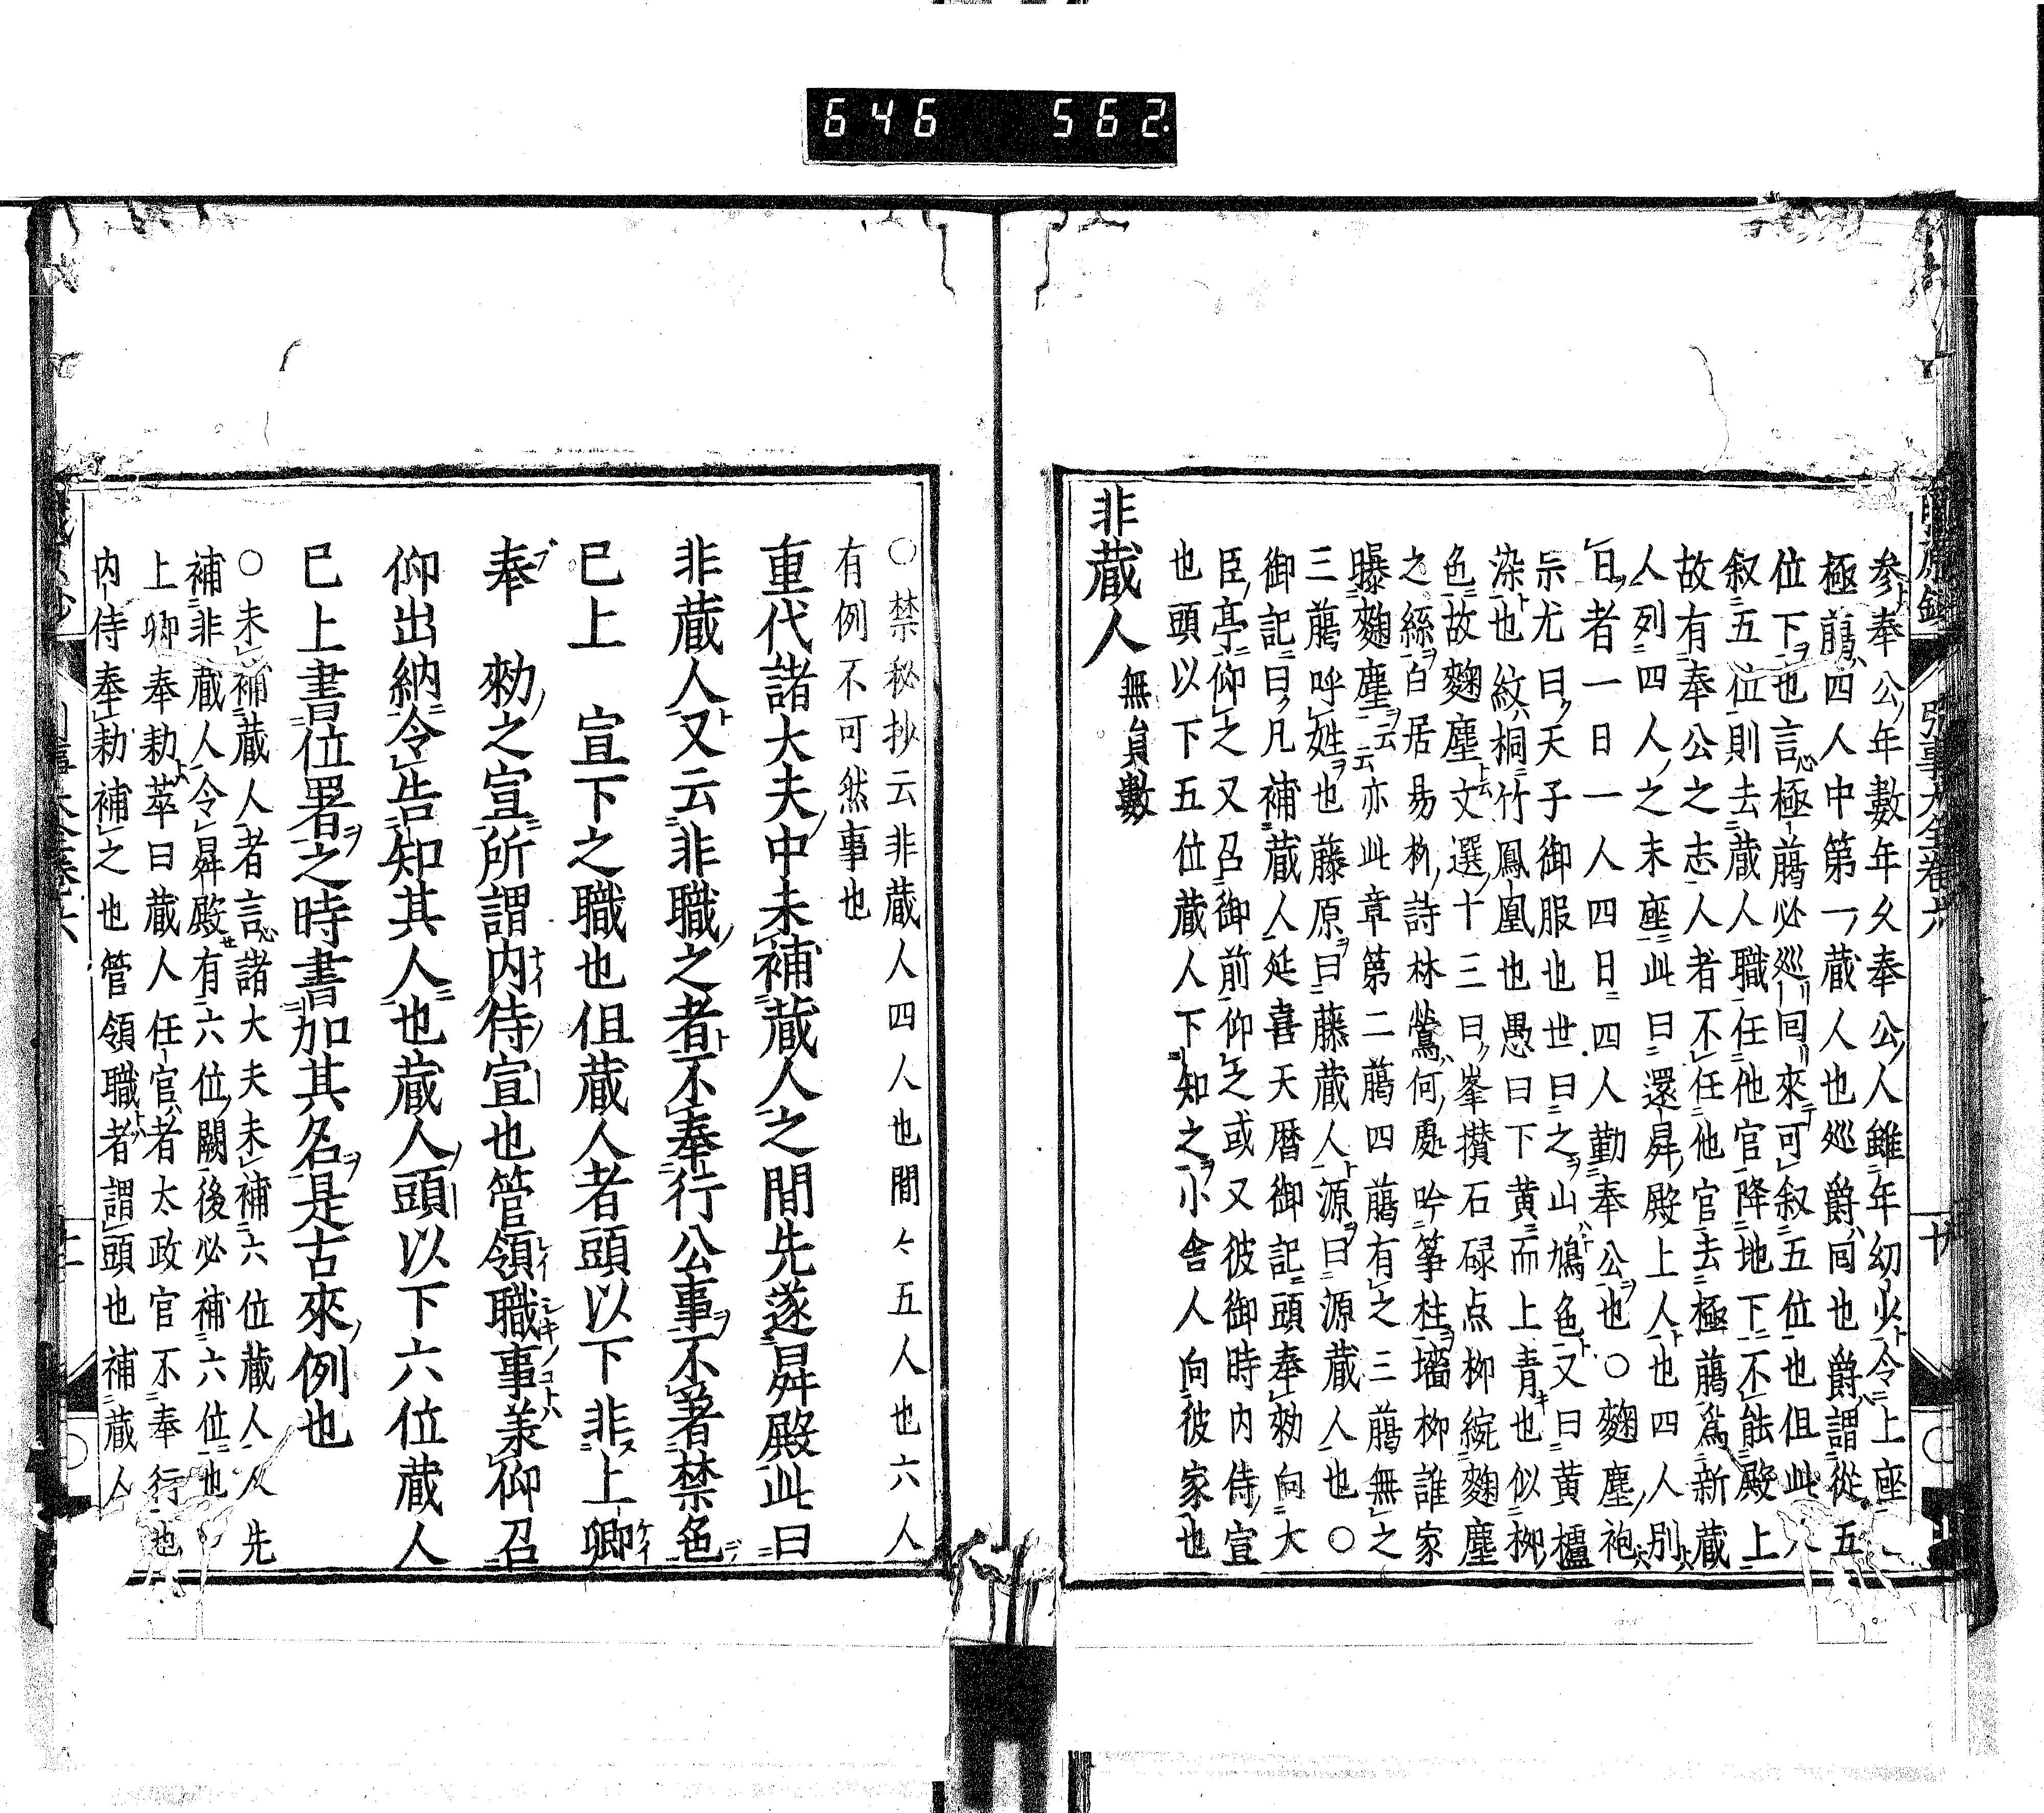 646 562
参奉公年數年久奉公人雖年幼少令上座
極﨟四人中第一蔵人也巡爵囘也爵謂從五
位下也言極﨟必巡囘來可叙五位也但此人
叙五位則去蔵人職任他官降地下不能殿上
故有奉公之志人者不任他官去極﨟爲新蔵
人列四人之末座此曰還昇殿上人也四人別
日者一日一人四日四人勤奉公也○麴塵袍
示尤曰天子御服也世曰之山鳩色又曰黄櫨
染也紋桐竹鳳凰也愚曰下黄而上青也似柳
色故麴塵文選十三曰峯攢石碌点柳綻麴塵
之絲白居易柳詩林鶯何處吟箏柱墻柳誰家
曝麴塵云云亦此章第二﨟四﨟有之三﨟無之
三﨟呼姓也藤原曰藤蔵人源曰源蔵人也○
御記曰凡補蔵人延喜天暦御記頭奉勅向大
臣亭仰之又召御前仰之或又彼御時内侍宣
也頭以下五位蔵人下知之小舎人向彼家也
非蔵人 無員數
○禁秘抄云非蔵人四人也間々五人也六人
有例不可然事也
重代諸大夫中未補蔵人之間先遂昇殿此曰
非蔵人又云非職之者不奉行公事不著禁色
已上 宣下之職也但蔵人者頭以下非上卿
奉 勅之宣所謂内侍宣也管領職事兼仰召
仰出納令告知其人也蔵人頭以下六位蔵人
已上書位署之時書加其名是古來例也
○未補蔵人者言諸大夫未補六位蔵人人先
補非蔵人令昇殿有六位闕後必補六位也
上卿奉勅萃曰蔵人任官者太政官不奉行也
内侍奉勅補之也管領職者謂頭也補蔵人